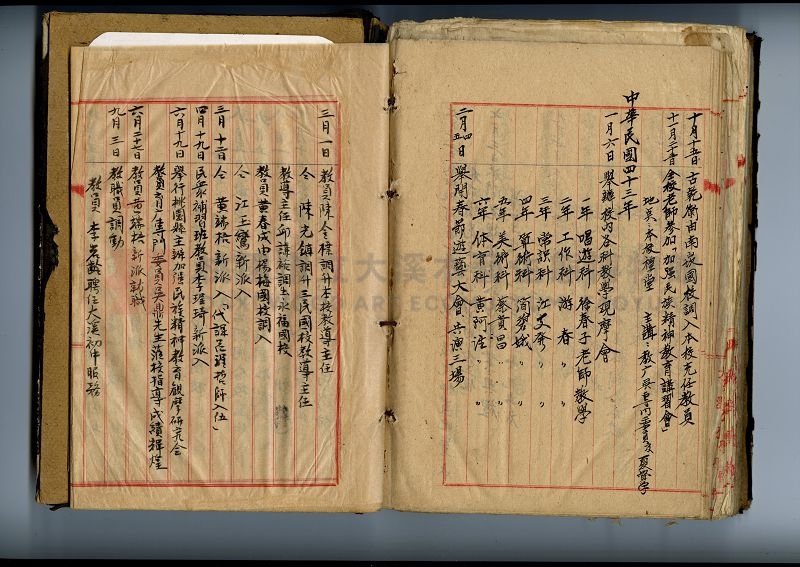 十月十五日 古乾蔚由南崁國校調入本校充任教員
十一月二十三日 全校老師參加「加強民族精神教育講習會」
地點：本校禮堂 主講：教廳吳專門委員及夏督學
中華民國四十三年
一月六日 舉辦校內各科教學現摩會
一年 唱遊科 徐春子老師教學
二年 工作科 游春 〃 〃
三年 常識科 江艾奔 〃 〃
四年 算術科 簡碧城 〃 〃
五年 美術科 蔡黃昌 〃 〃
六年 体育科 黃阿注 〃 〃
二月四五日 舉開春節遊藝大會 共演三場
三月一日 教員陳金樑調升本校教導主任
仝 陳光鎮調升三民國校教導主任
教導主任邱謙裕調主永福國校
教員黃春成由楊梅國校調入
仝 江玉鸞新派入
三月十二日 仝 黃瑞格新派入「代課
四月十九日 民眾補習班教員李瑆琦新派入
六月十九日 舉行桃園縣主辦加强民族精神教育観摩研究会
教育廳專門委員吳鼎先生蒞校指導成績輝煌
六月二十七日 教員黃瑞格新派訓職
九月三日 教職員調動
教員 李君懿聘任大溪初中服務